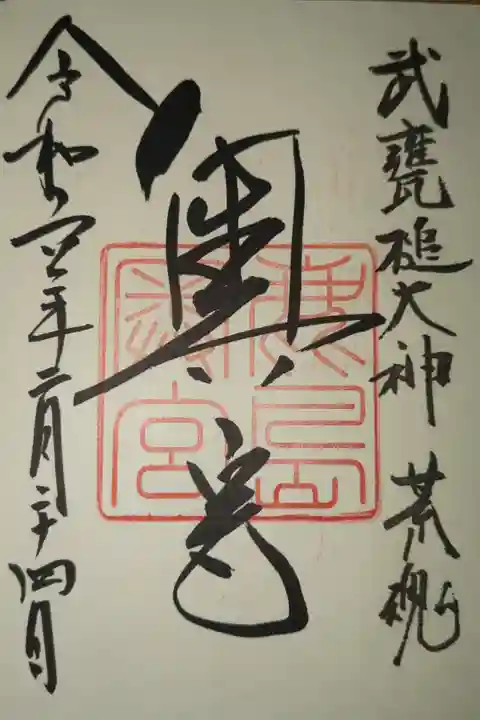 武甕槌大神 荒魂
奥宮
鹿島
神宮
令和 年二月二十四日